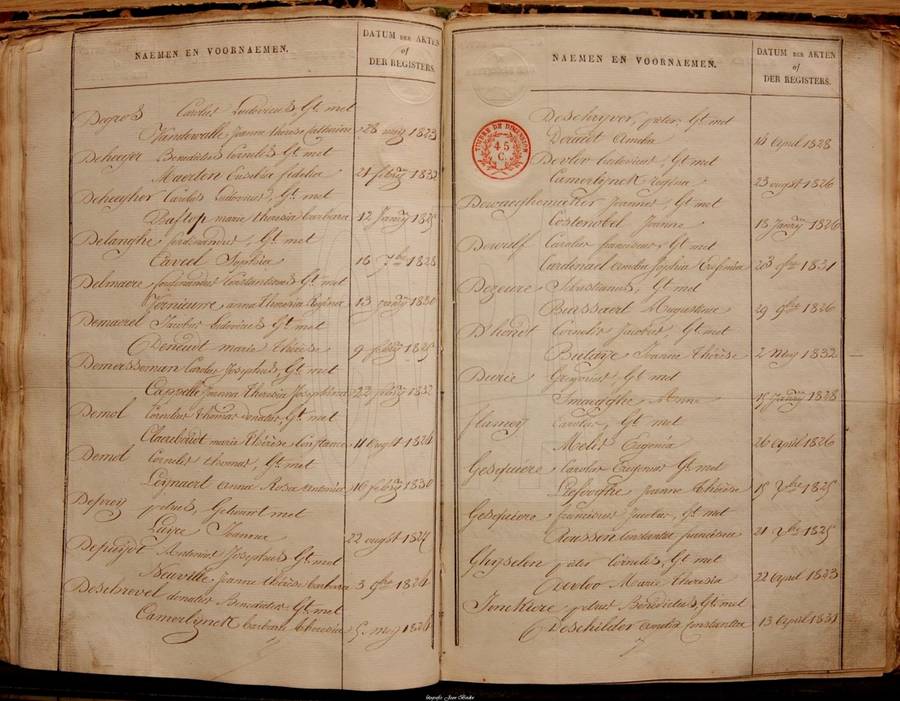 NAEMEN EN VOORNAEMEN.
DATUM DER AKTEN
of
DER REGISTERS.
Degros Carolus Ludovicus, Gt. met
Vandewalle Joanna theresia catharine 28 meij 1823
Deheyer Benedictus Gt. met
Maerten Eusebia fidelia 21 1832
Deheegher Carolus Ludovicus, Gt. met
Daftop marie theresia barbara 12 Janry 1825
Delanghe ferdinandus, Gt. met
Caveel Sophia 16 7bre 1828
Delmaere ferdinandus Constantinus Gt. met
Vernieuwe anna theresia Regina 13 1830
Demaerel Jacobus Ludovicus Gt. met
Deneudt marie thérèse 9 1825
Demersseman Carolus Josephus, Gt. met
Cappelle Joanna theresia Josephina 22 1832
Demol Cornelius thomas donatus, Gt. met
Claerboudt maria thérèse Constance 11 augst 1824
Demol Cornelis thomas, Gt. met
Leynaert anna Rosa antonia 16 febry 1830
Deprey petrus, Gehuwt met
Luyce Joanna 22 augst 1825
Depuijdt Antonius Josephus Gt. met
Neuville Joanna thérèse barbara 3 1824
Deschrevel donatus Benedictus Gt. met
Camerlynck barbara theresia 5 meij 1824
NAEMEN EN VOORNAEMEN.
DATUM DER AKTEN
of
DER REGISTERS.
TIMBRE DE DIMENSION
45
C.
Deschryver, peter, Gt. met
Douaet Amelia 14 April 1828
Devloo Ludovicus, Gt. met
Camerlynck Regina 23 augst 1826
Dewaeghemaeker Joannes, Gt. met
Costenobel Joanna 18 Janry 1826
Dewulf Carolus franciscus, Gt. met
Cardinael amelia Sophia Eufrosia 1831
Dezeure Sebastianus, Gt. met
Bussaert Augustina 29 9bre 1826
D'hondt Cornelis Jacobus, Gt. met
Butaye Joanna thérèse 2 Meij 1832
Durie Gregorius, Gt. met
Smaegghe Anna 15 Janry 1828
flamey Carolus, Gt. met
Melis Eugenia 26 April 1826
Gesquiere Carolus Eugenius Gt. met
Liefooghe Joanna thérèse 15 1825
Gesquiere franciscus Jacobus, Gt. met
Rousson Constantia francisca 21 1825
Ghyselen pieter Cornelis, Gt. met
Marie theresia 22 April 1823
Jonckiere petrus Benedictus, Gt. met
Deschilder Amelia Constantia 13 April 1831